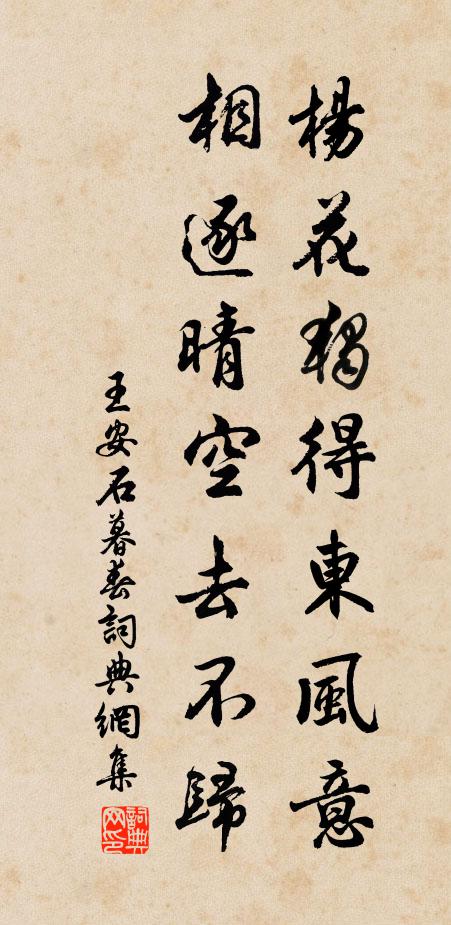 楊花獨得東風意
相逐晴空去不歸
王安石暮春詞典網集
詞典网印